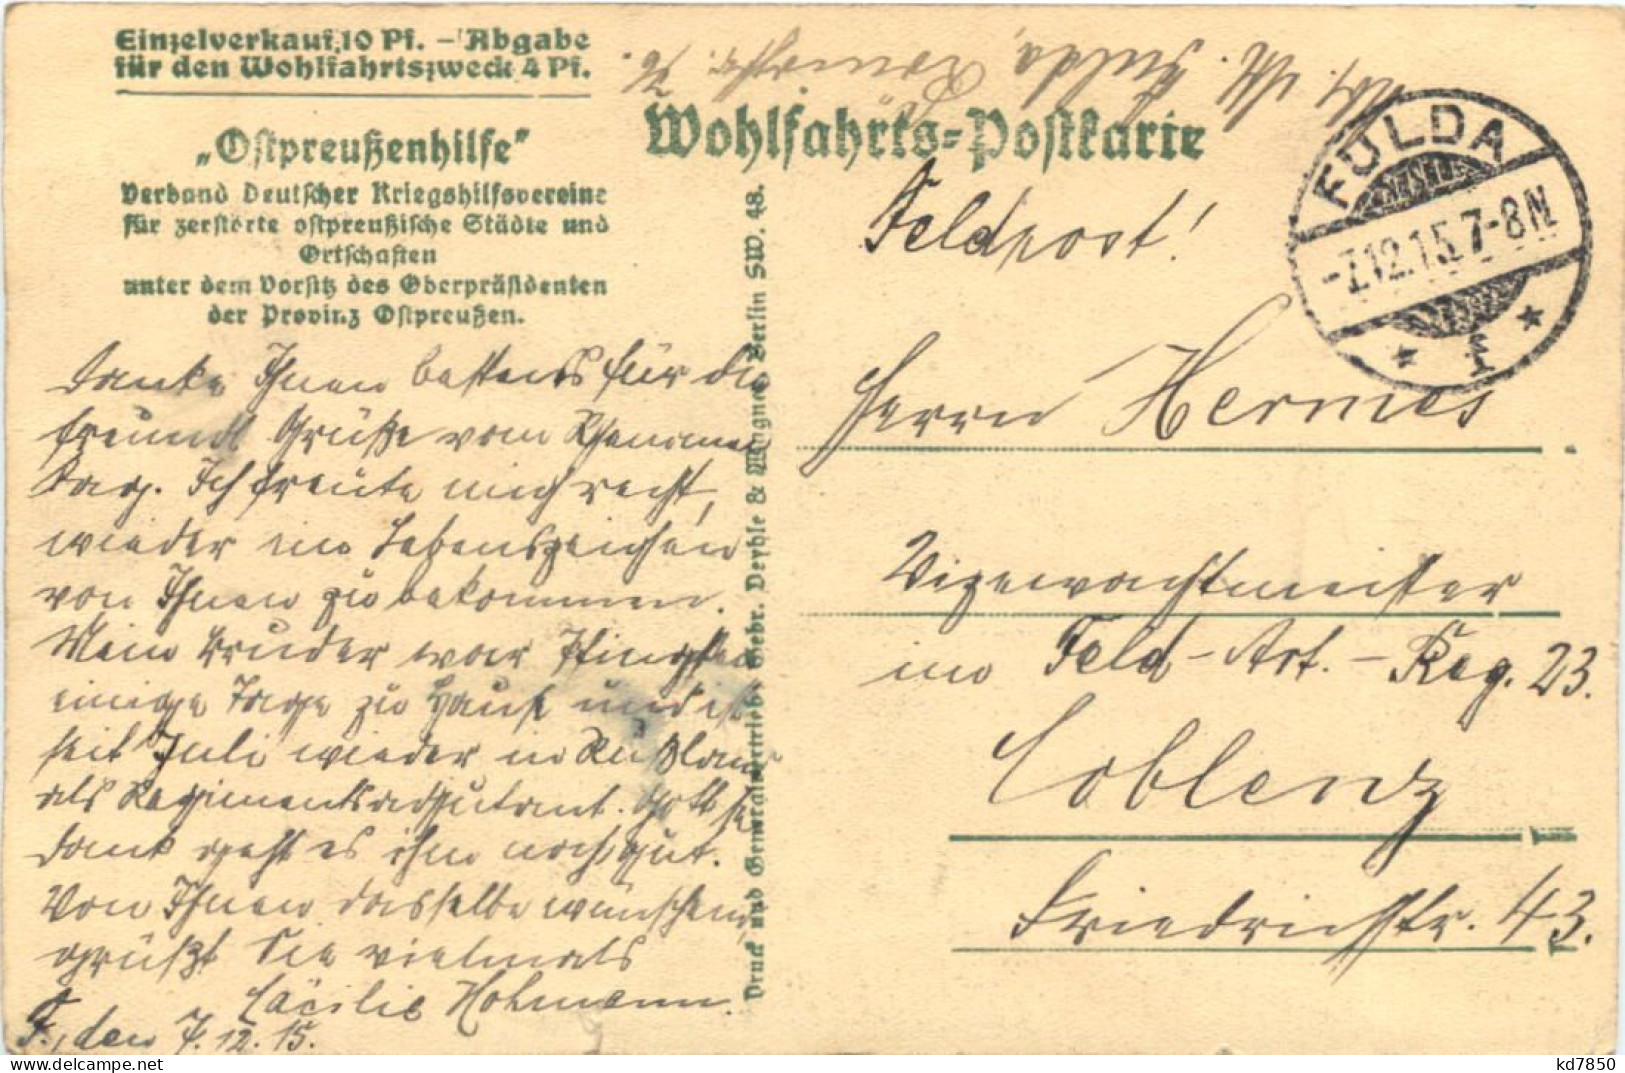 Einzelverkauf 10 Pf. – Abgabe
für den Wohlfahrtszweck 4 Pf.
„Ostpreußenhilfe"
Verband Deutscher Kriegshilfsvereine
für zerstörte ostpreußische Städte und
Ortschaften
unter dem Vorsitz des Oberpräsidenten
der Provinz Ostpreußen.
Danke Ihnen bestens für die
freundl Grüße vom
Ich freute mich recht,
wieder ein Lebenszeichen
von Ihnen zu bekommen.
Mein Bruder war Pfingsten
einige Tage zu Hause und ist
seit Juli wieder in Rußland
als Regimentsadjutant. Gott sei
Dank geht es ihm noch gut.
Von Ihnen dasselbe wünschend,
grüßt Sie vielmals
Cäcilie Hohmann.
F., den 7.12.15.
Druck und Generalvertrieb: Gebr. Deyhle & Wagner Berlin SW. 48.
Fulda,
Wohlfahrts-Postkarte
FULDA
-7.12.15.7-8N
* f *
Feldpost!
Herrn Hermes
Vizewachtmeister
im Feld-Art.-Reg. 23.
Coblenz
Friedrichstr. 43.
kd7850